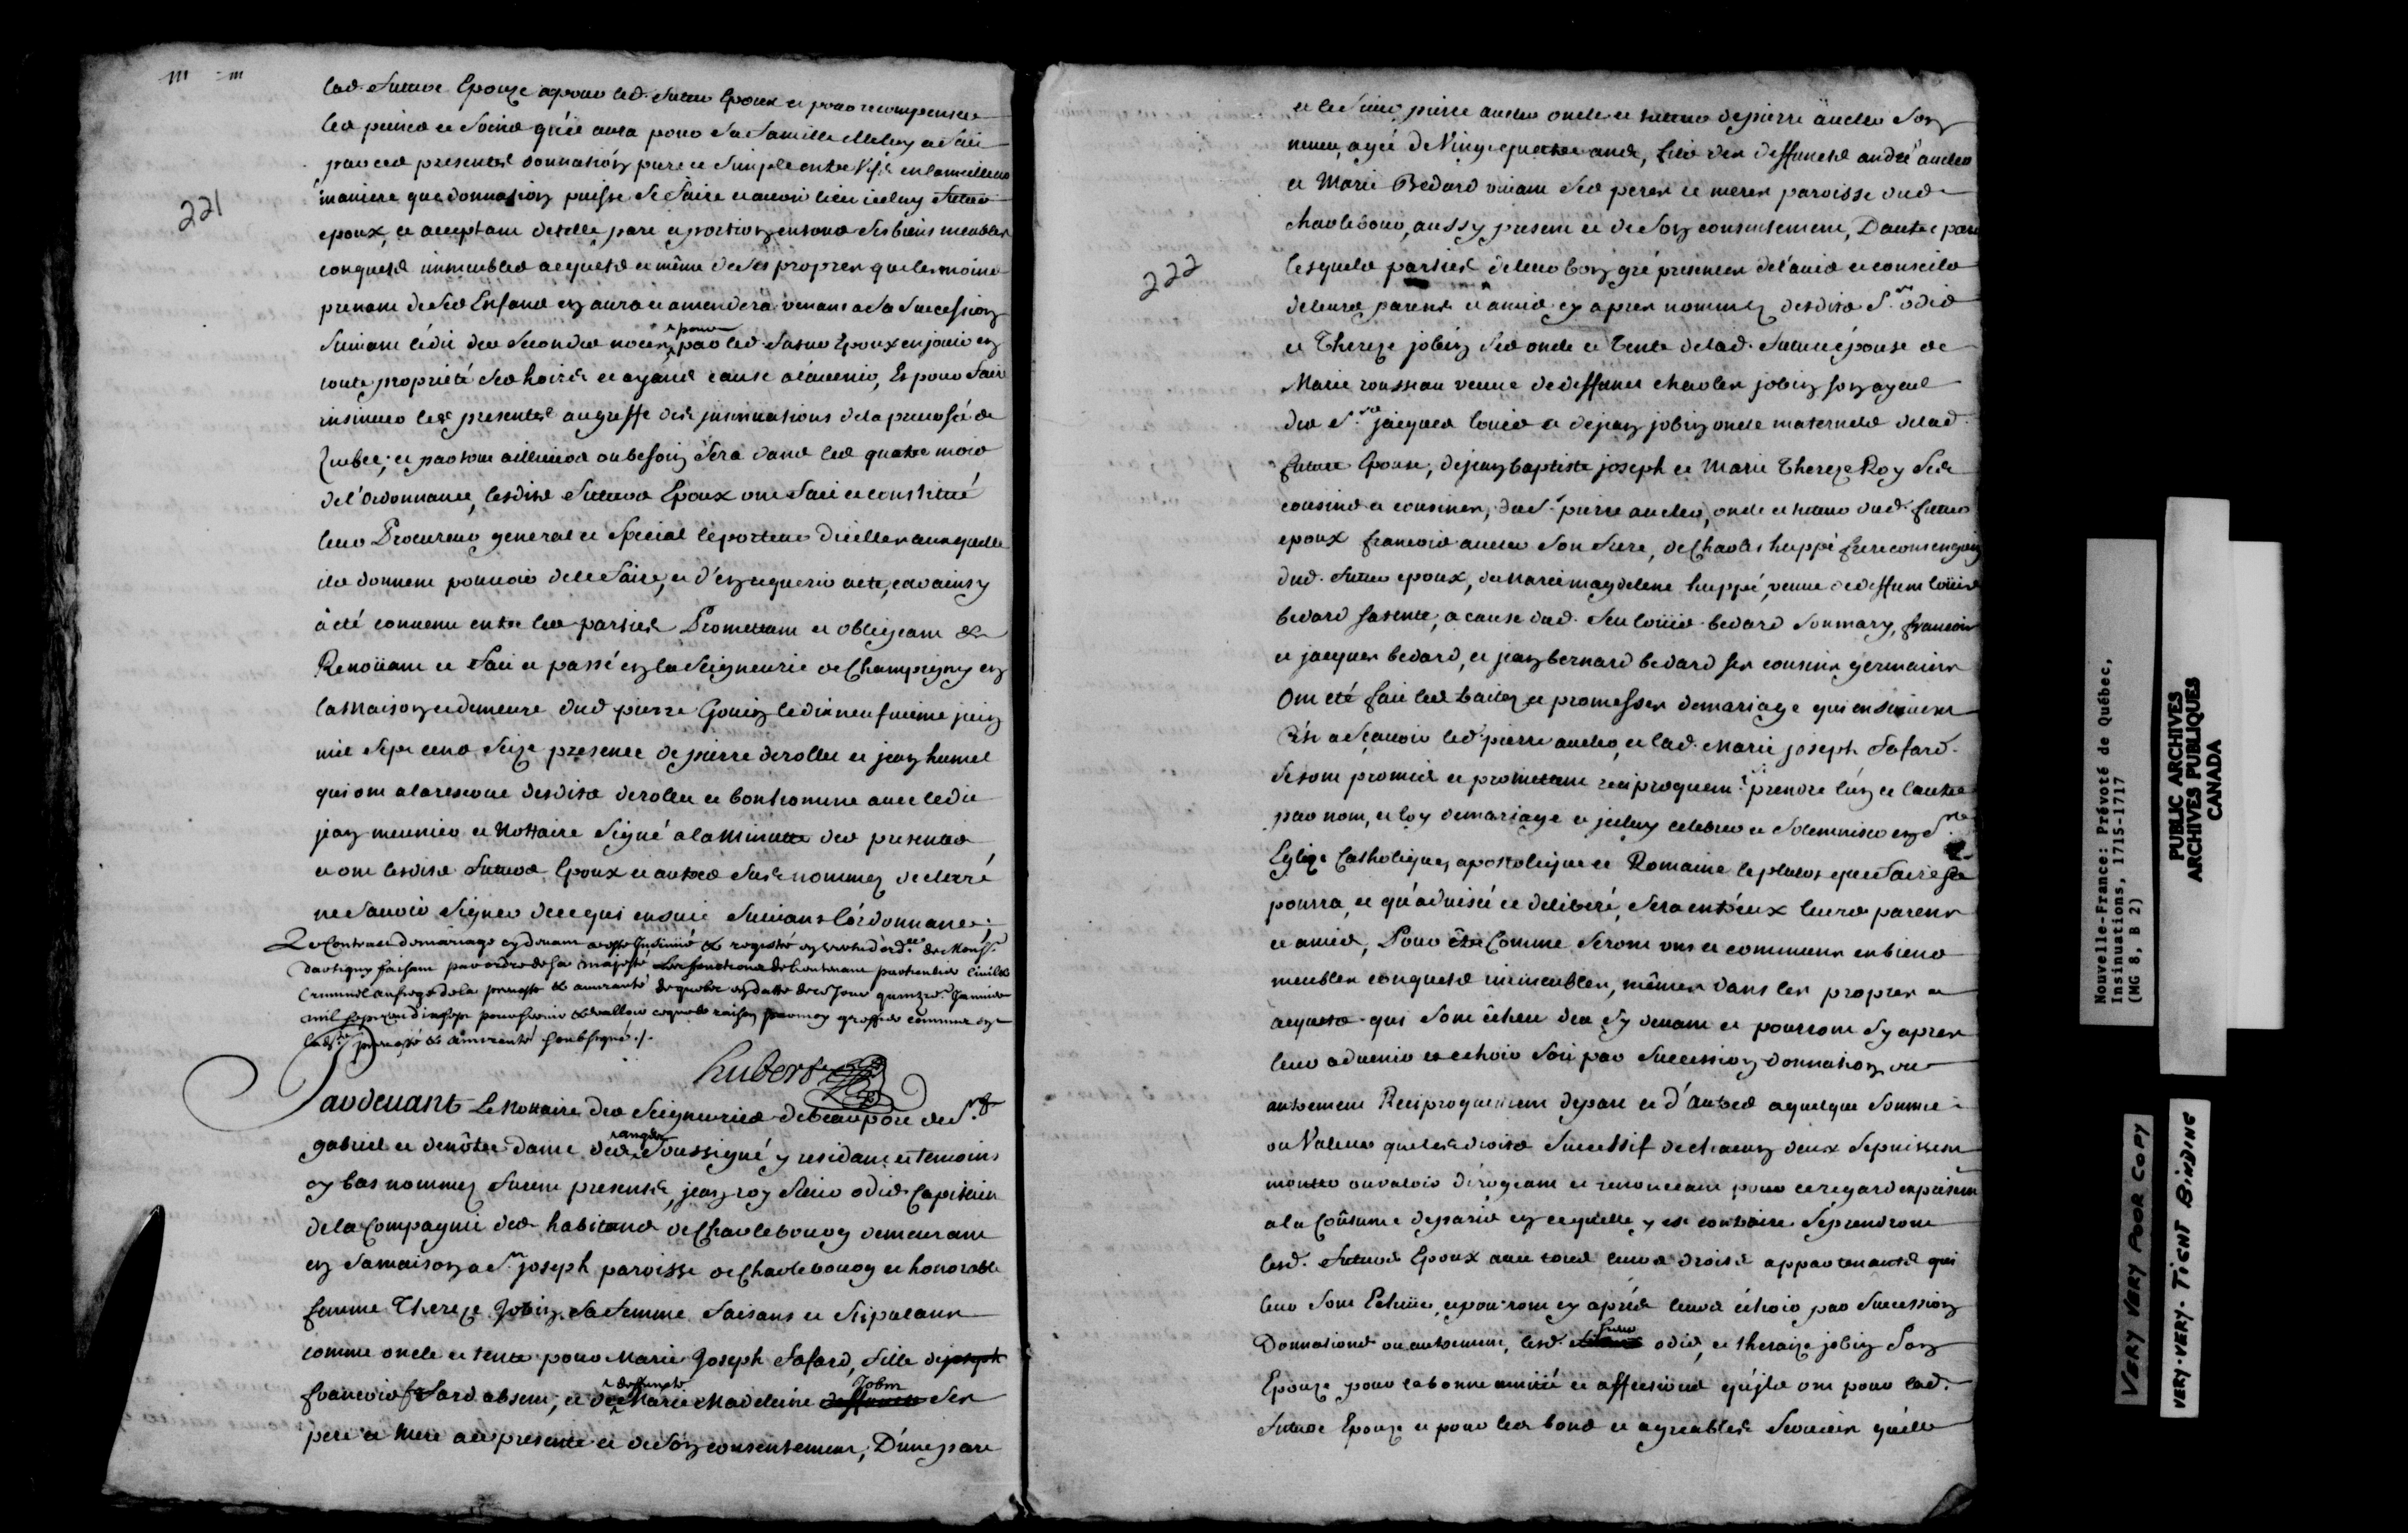 221
lad. future Epouze apour led. futur Epoux et pour recompenser
les peines et soins qu'il aura pour sa famille elle luy a fait
par ces presentes donnation pure et simple entre vifs en la meilleure
maniere que donnation puisse se faire et avoir lieu iceluy futur
epoux, ce acceptant detelle part et portion en tous ses biens meubles
conquests immeubles acquests et même de ses propres que le moins
prenant de ses Enfans en aura et amendera venans a sa succession
suivant l'edit des secondes noces pour par led. futur Epoux en jouir en
toute propriété ses hoirs et ayans cause alavenir, Et pour faire
insinuer les presentes au greffe des insinuations dela prevosté de
Quebec; et partout ailleurs ou besoin sera dans les quatre mois
de l'ordonnance, lesdits futurs Epoux ont fait et constitué
leur Procureur general et special le porteur d'icelles auxquelle
ils donnent pouvoir dele faire, et d'en requerir acte, car ainsy
à été convenu entre les parties Promettant et obligeant &c
Renonçant &c fait et passé en la seigneurie de Champigny en
la maison et demeure dud pierre Gouin le dixneufvieme juin
mil sept cens seize presence de pierre derollet et jean hamel
qui ont a la reserve desdits derollet et bonhomme avec ledit
jean meunier et Nottaire signé a la minutte des presentes
et ont lesdits futurs Epoux et autres sus nommez declaré
ne savoir signer de ce qui ensuit suivant l'ordonnance;
Le Contract de mariage cy devant a esté Insinué & registré en vertu d'ordce de Monsr
dartigny faisant par ordre de sa majesté les fonctions de lieutenant particulier civil &
Criminel au siege de la prevosté & amirauté de quebec en datte de ce Jour quinze Janvier
mil sept cens dixsept pour servir & valloir ce que de raison par moy greffier commis en
lad. prevosté & amirauté soubsigné ./.
hubert
Pardevant Le Nottaire des Seigneuries de beaupré de St
gabriel et de nôtre Dame des anges soussigné y residant et temoins
cy bas nommez furent presents, jean roy sieur odis Capitaine
de la Compagnie des habitans de Charlebourg demeurant
en sa maison a St joseph paroisse de Charlebourg et honorable
femme Thereze Jobin sa femme faisans et stipulans
comme oncle et tente pour Marie Joseph Safard, fille de joseph
francois safard absent, et de deffuncte Marie Madeleine deffuncte Jobin ses
pere et mere a ce presente et de son consentement, D'une part
222
et le sieur pierre aucler oncle et tuteur de pierre aucler son
neveu, agé de Vingt quatre ans, fils des deffuncts andré aucler
et Marie Bedard vivant ses peres et meres paroisse dud
charlebour, aussy present et de son consentement, D'autre part
lesquels parties de leur bon gré presentes de l'avis et conseils
de leurs parens et amis cy apres nommez desdits Srs odis
et Thereze jobin ses oncle et tente de lad. future épouse de
Marie rousseau veuve de deffunct charles jobin son ayeul
des Srs jacques louis et de jean jobin oncle maternels de lad
future Epouse, de jean baptiste joseph et Marie Thereze Roy ses
cousins et cousines, du S. pierre aucler, oncle et tuteur dud. futur
epoux francois auclere son frere, de Charles huppé frere consenguin
dud. futur epoux, de marie magdelene huppé, veuve de deffunt loüis
bedard sa tente, a cause dud. feu loüis bedard son mary, francois
et jacques bedard, et jean bernard bedard ses cousins germains
Ont été fait les traitez et promesses de mariage qui ensuivent
C'est asçavoir led. pierre auclere, et lad. Marie joseph Safard
se sont promis et promettent reciproquemt prendre l'un et l'autre
par nom, et loy de mariage et jceluy celebrer et solemniser en Nre
Eglize Catholique, apostolique et Romaine le plutost que faire se
pourra, et qu'advisée et deliberé, sera entr'eux leurs parens
et amis, Pour être Comme seront uns et communs en biens
meubles conquests immeubles, mêmes dans les propres et
acquests qui sont écheu des cy devant et pourront cy apres
leur advenir et echoir soit par succession donnation ou
autrement Reciproquement de part et d'autres a quelque somme
ou Valeur que les droits successif de chacun deux se puissent
monter ou valoir dérogeant et renonceant pour ce regard expressem
a la Coûtume de paris en ce quelle y est contraire se prendront
lesd. futurs Epoux avec tous leurs droits appartenants qui
leur sont Echües, et pourront cy aprés leurs échoir par succession
Donnations ou autrement, lesd. sieur odis, et theraize jobin son
Epouze pour la bonne amitié et affections qu'jls ont pour lad.
future Epouze et pour les bons et agreables services qu'elle
Nouvelle-France: Prévoté de Québec,
Insinuations, 1715-1717
(MG 8, B 2)
PUBLIC ARCHIVES
ARCHIVES PUBLIQUES
CANADA
VERY VERY POOR COPY
VERY-VERY-TIGHT BINDING